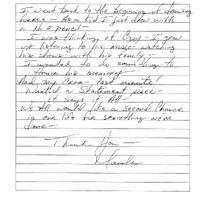 I went back to the beginning of drawing
because - As a kid I just drew with
a No 2 pencil -
I was thinking of Cory - I grew
up listening to his music watching
his shows with his family -
I wanted to do something to
honor his memory -
Had any Crow - last minute!
Wanted a Statement piece -
it says it All -
We All would like a Second Chance
in our life for something we've
done -
Thank You -